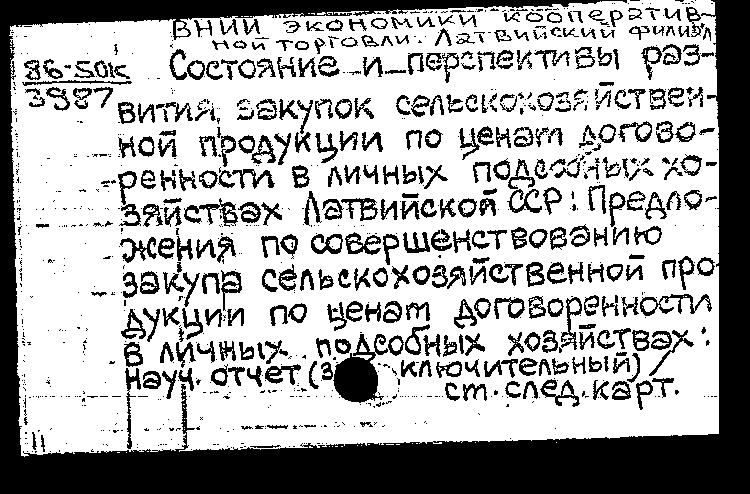 ВНИИ экономики кооператив-
ной торговли. Латвийский филиал
86-50К
3987
Состояние и перспективы раз-
вития закупок сельскохозяйствен-
ной продукции по ценам догово-
ренности в личных подсобных хо-
зяйствах Латвийской ССР: Предло-
жения по совершенствованию
закупа сельскохозяйственной про
дукции по ценам договоренности
в личных подсобных хозяйствах:
науч. отчет (з ключительный) /
ст. след. карт.
11